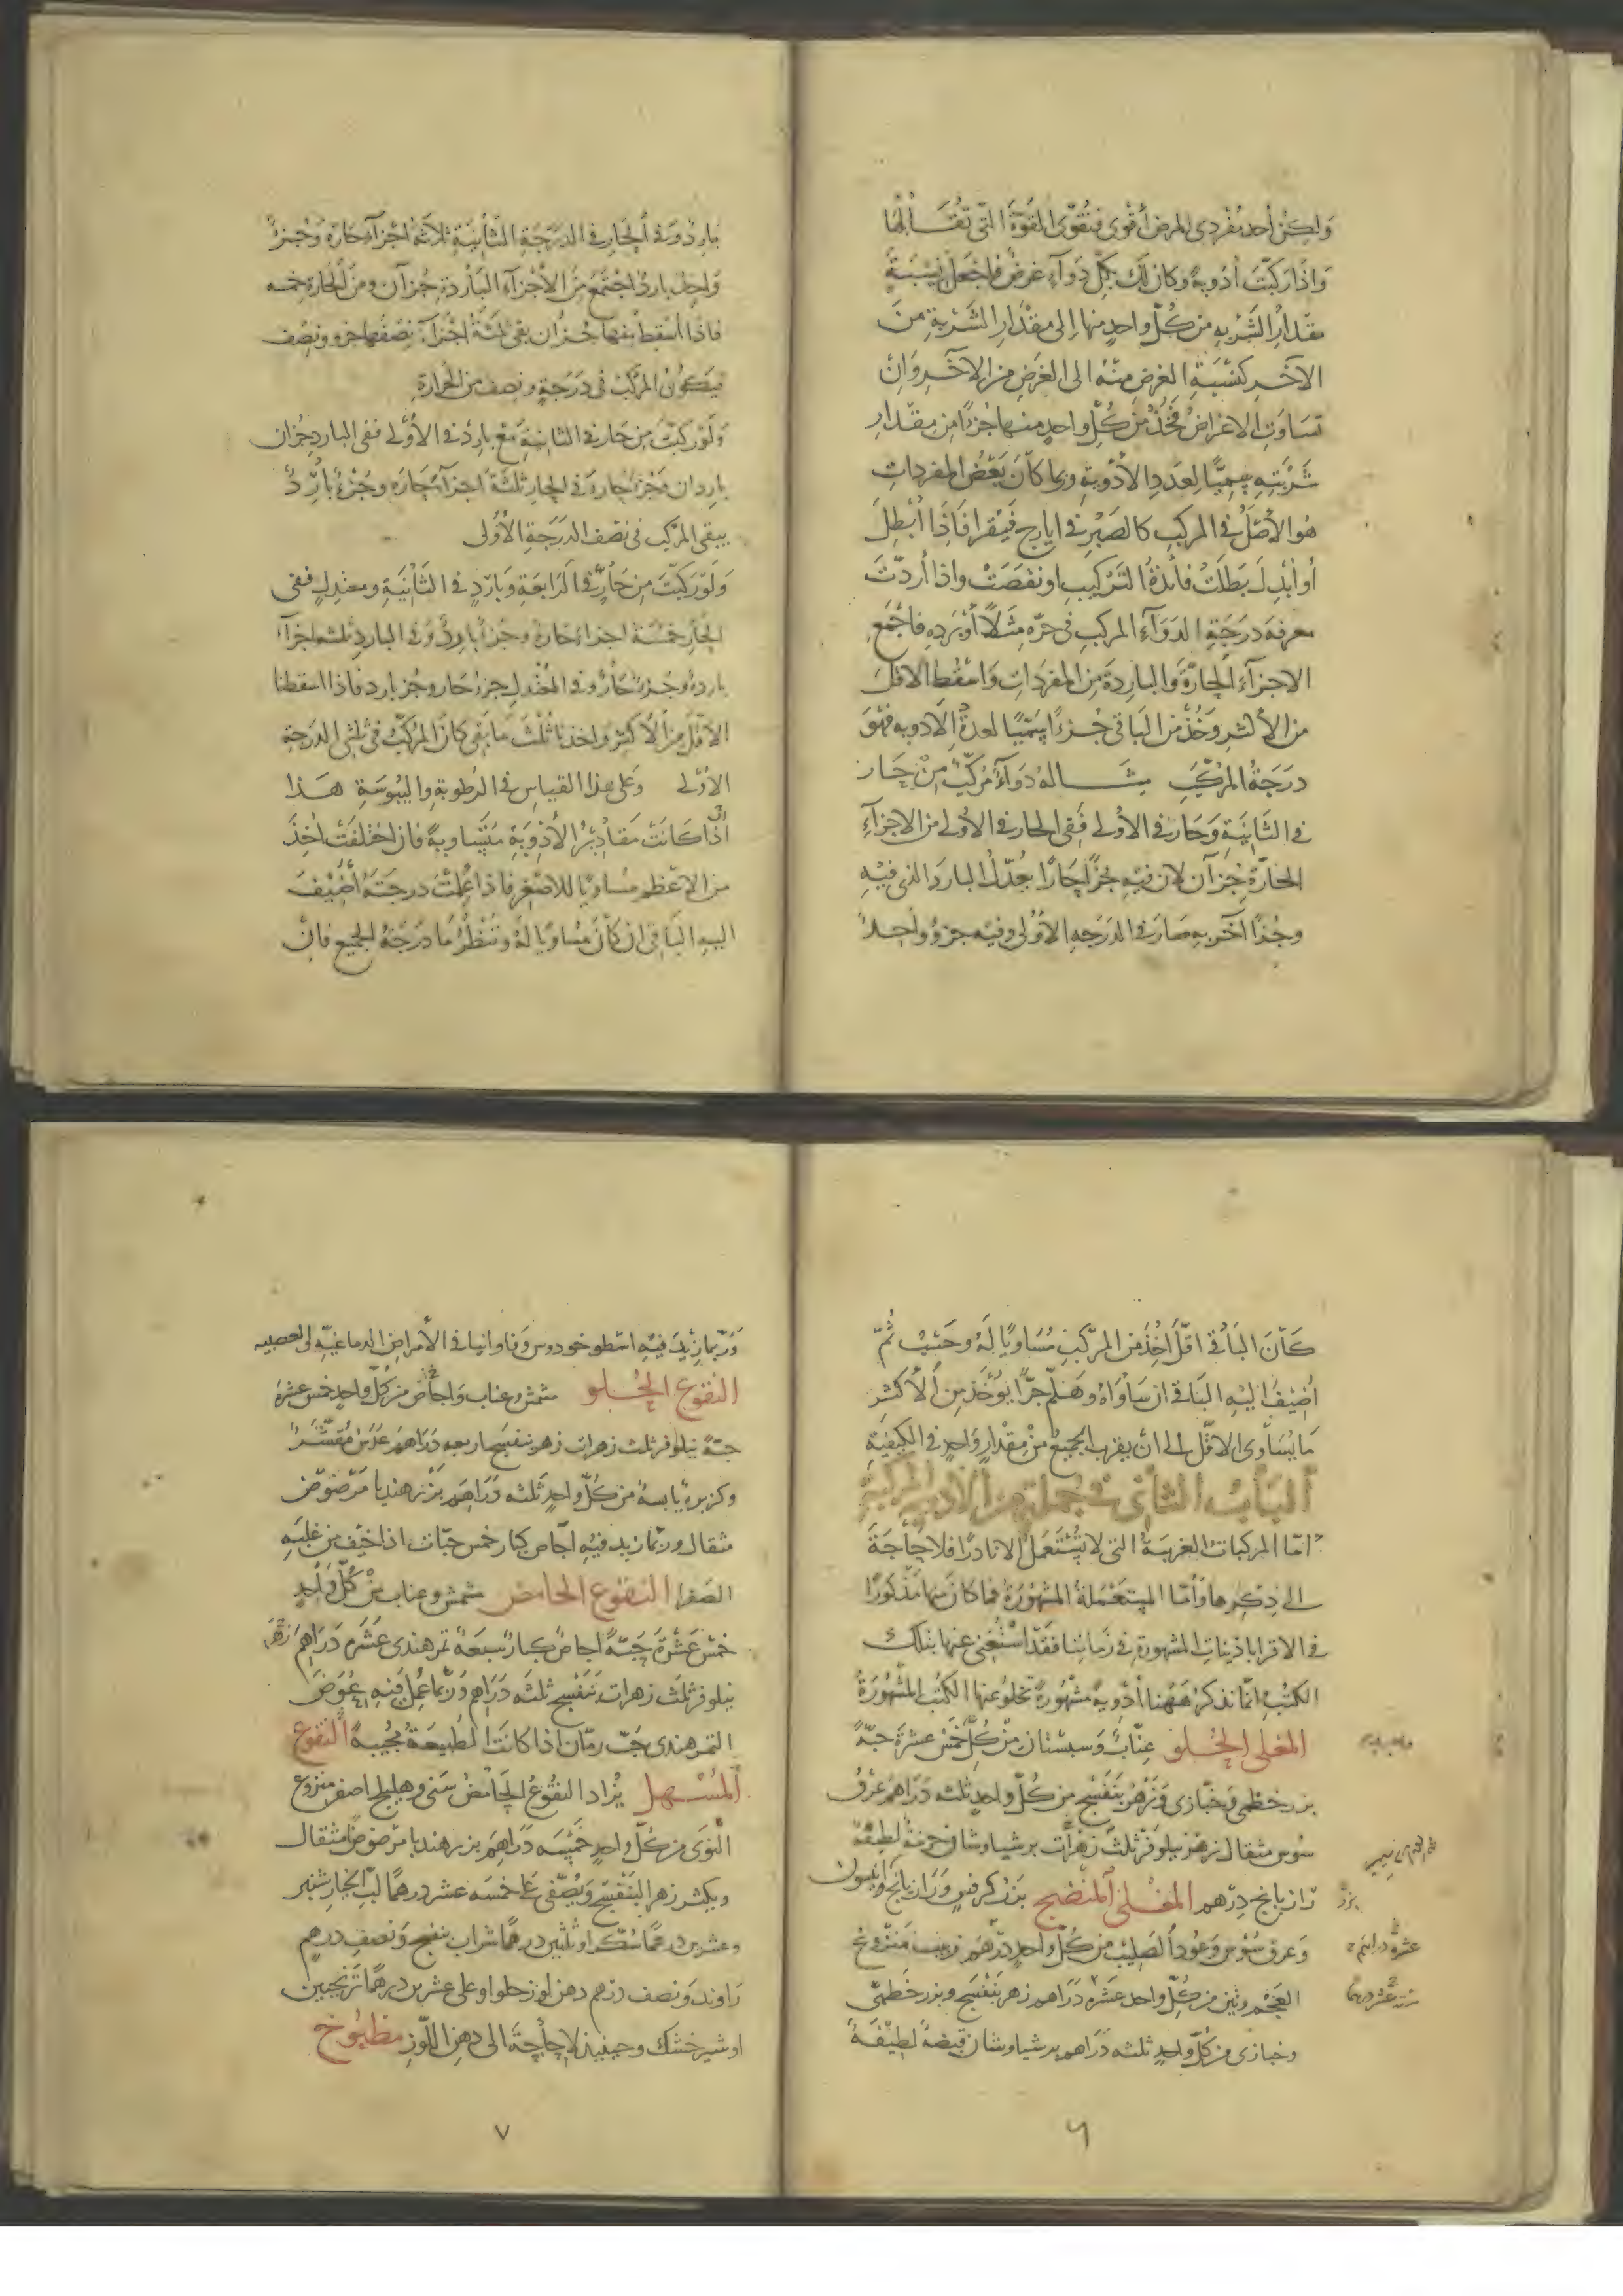 ولكن أحد مفردى المرض أقوى فتقوى القوة التى تقابلها
واذا ركبت أدوية وكان لك بكل دوآء غرض فاجعل نسبة
مقدار الشربه من كل واحد منها الى مقدار الشربة من
الآخر كنسبة الغرض منه الى الغرض من الآخر وان
تساوت الاغراض فخذ من كل واحد منها جزءا من مقدار
شربته سميا لعدد الأدوية وربما كان بعض المفردات
هو الأصل فى المركب كالصبر فى ايارج فيقرا فاذا أبطل
أو أبدل بطلت فائدة التركيب او نقصت واذا أردت
معرفة درجة الدوآء المركب فى حره مثلا أو برده فاجمع
الاجزآء الحارة والباردة من المفردات واسقط الاقل
من الأكثر وخذ من الباقى جزءا سميا لعدة الادويه فهو
درجة المركب مثاله دوآء مركب من حار
فى الثانية وحار فى الأولى ففى الحار فى الأولى من الاجزآء
الحارة جزآن لان فيه جزءا حارا يعدل البارد الذى فيه
وجزءا آخر به صار فى الدرجه الأولى وفيه جزؤ واحد
بارد وفى الحار فى الدرجة الثانية ثلاثة اجزآء حارة وجزء
واحد بارد اجتمع من الأجزآء الباردة جزآن ومن الحارة خمسه
فاذا أسقط منها جزآن بقى ثلثة اجزآء نصفها جزو ونصف
فيكون المركب فى درجة ونصف من الحرارة
ولو ركبت من حار فى الثانية مع بارد فى الأولى ففى البارد جزان
باردان وجزء حار وفى الحار ثلثة اجزآء حاره وجزء بارد
يبقى المركب فى نصف الدرجة الأولى
ولو ركبت من حار فى الرابعة وبارد فى الثانية ومعتدل ففى
الحار خمسة اجزاء حارة وجزءا بارد وفى البارد ثلثه اجزآء
باردة وجزء حار وفى المعتدل جزء حار وجز بارد فاذا اسقطنا
الاقل من الأكثر واخذنا ثلث ما بقى كان المركب فى ثلثى الدرجة
الأولى وعلى هذا القياس فى الرطوبة واليبوسة هذا
اذا كانت مقادير الأدوية متساوية فان اختلفت أخذ
من الاعظم مساويا للاصغر فاذا علمت درجته أضيف
اليه الباقى ان كان مساويا له وتنظر ما درجة الجميع فان
كان الباقى اقل أخذ من المركب مساويا له وحسب ثم
أضيف اليه الباقى ان ساواه وهلم جرا يؤخذ من الأكثر
ما يساوى الاقل الى ان يقرب الجميع من مقدار واحد فى الكيفية
الباب الثانى فى جملة من الادوية المركبة
اما المركبات الغريبة التى لا تستعمل الا نادرا فلا حاجة
الى ذكرها وأما المستعملة المشهورة فما كان منها مذكورا
فى الاقراباذينات المشهورة فى زماننا فقد استغنى عنها بتلك
الكتب انما نذكر ههنا أدوية مشهورة تخلو عنها الكتب المشهورة
المغلى الحلو عناب وسبستان من كل خمس عشرة حبة
بزر خطمى وخبازى وزهر بنفسج من كل واحد ثلثه دراهم عرق
سوس مثقال زهر نيلوفر ثلث زهرات برشياوشان حزمة لطيفة
رازيانج درهم المغلى المنضج بزر كرفس ورازيانج وانيسون
وعرق سوس وعود الصليب من كل واحد درهم زبيب منزوع
العجم وتين من كل واحد عشرة دراهم زهر بنفسج وبزر خطمى
وخبازى من كل واحد ثلثه دراهم برشياوشان قبضة لطيفة
بزر
عشرة دراهم
٦
وربما زيد فيه اسطوخودوس وفاوانيا فى الأمراض الدماغية والعصبيه
النقوع الحلو مشمش وعناب واجاص من كل واحد خمس عشرة
حبة نيلوفر ثلث زهرات زهر بنفسج اربعه دراهم عدس مقشر
وكزبرة يابسة من كل واحد ثلثه دراهم بزر هندبا مرضوض
مثقال وربما زيد فيه اجاص كبار خمس حبات اذا خيف من غلبه
الصفرا النقوع الحامض مشمش وعناب من كل واحد
خمس عشرة حبة اجاص كبار سبعة تمر هندى عشره دراهم زهر
نيلوفر ثلث زهرات بنفسج ثلثه دراهم وربما عمل فيه عوض
التمر هندى حب رمان اذا كانت الطبيعة مجيبة النقوع
المسهل يزاد النقوع الحامض سنى وهليلج اصفر منزوع
النوى من كل واحد خمسه دراهم بزر هندبا مرضوض مثقال
ويكثر زهر البنفسج ويصفى على خمسه عشر درهما لب الخيار شنبر
وعشرين درهما سكر او ثلثين درهما شراب بنفسج ونصف درهم
راوند ونصف درهم دهن لوز حلو او على عشرين درهما ترنجبين
او شير خشك وحينيذ لا حاجة الى دهن اللوز مطبوخ
٧